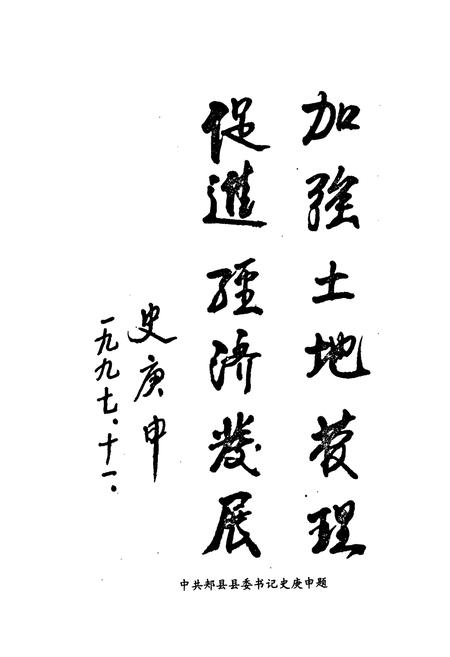 加強土地管理
促進經济發展
史庚申
一九九七、十一、
中共郏县县委书记史庚申题